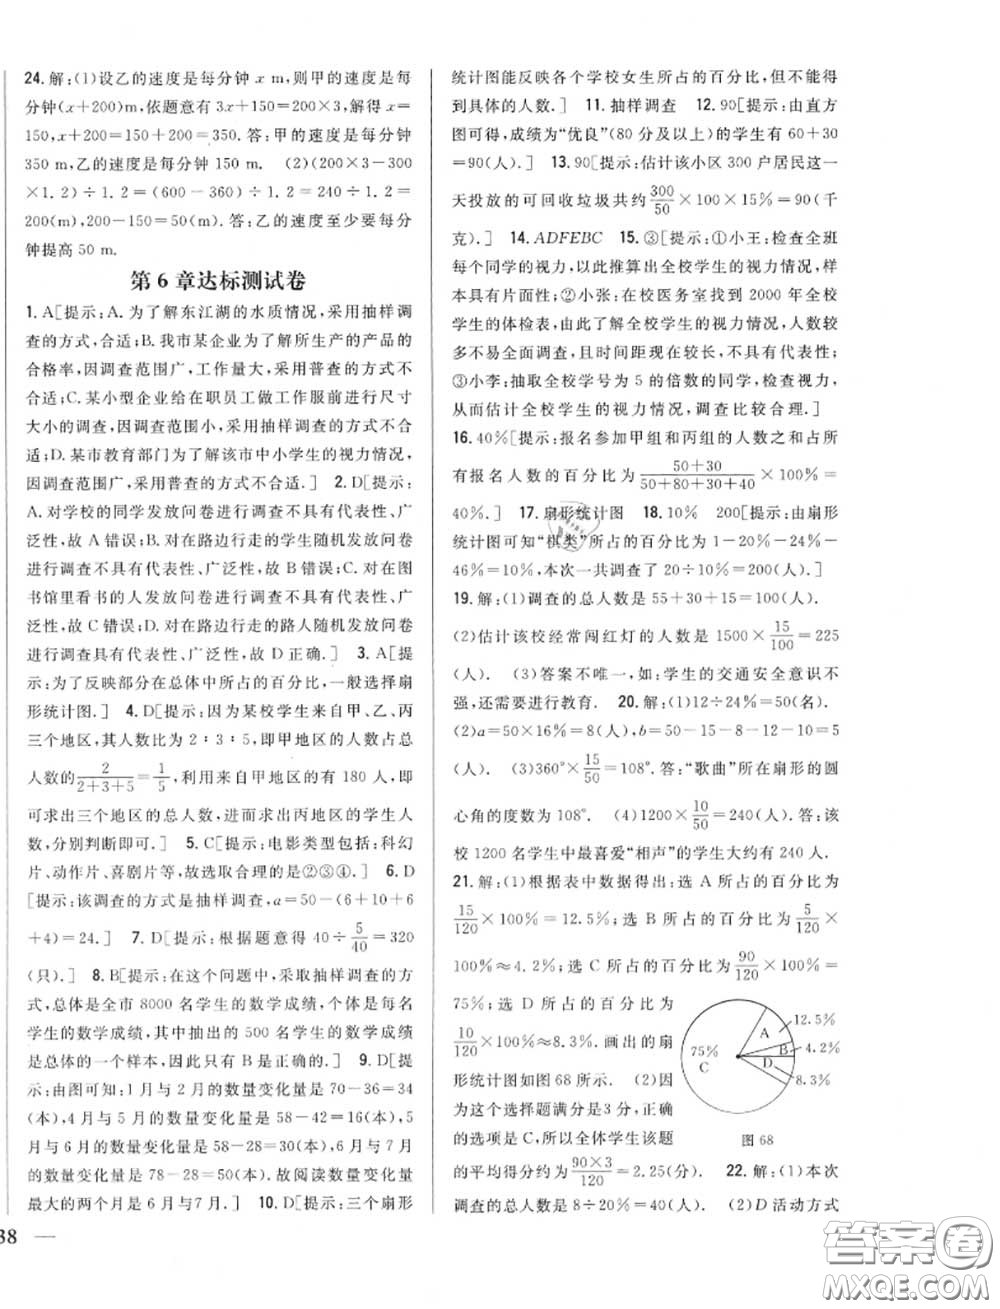 24. 解:(1)设乙的速度是每分钟 x m,则甲的速度是每
分钟(x+200)m,依题意有 3x+150=200×3,解得 x=
150,x+200=150+200=350. 答:甲的速度是每分钟
350 m,乙的速度是每分钟 150 m. (2)(200×3-300
×1.2)÷1.2=(600-360)÷1.2=240÷1.2=
200(m),200-150=50(m). 答:乙的速度至少要每分
钟提高 50 m.
第 6 章达标测试卷
1. A[提示:A. 为了解东江湖的水质情况,采用抽样调
查的方式,合适;B. 我市某企业为了解所生产的产品的
合格率,因调查范围广,工作量大,采用普查的方式不
合适;C. 某小型企业给在职员工做工作服前进行尺寸
大小的调查,因调查范围小,采用抽样调查的方式不合
适;D. 某市教育部门为了解该市中小学生的视力情况,
因调查范围广,采用普查的方式不合适.] 2. D[提示:
A. 对学校的同学发放问卷进行调查不具有代表性、广
泛性,故 A 错误;B. 对在路边行走的学生随机发放问卷
进行调查不具有代表性、广泛性,故 B 错误;C. 对在图
书馆里看书的人发放问卷进行调查不具有代表性、广
泛性,故 C 错误;D. 对在路边行走的路人随机发放问卷
进行调查具有代表性、广泛性,故 D 正确.] 3. A[提
示:为了反映部分在总体中所占的百分比,一般选择扇
形统计图.] 4. D[提示:因为某校学生来自甲、乙、丙
三个地区,其人数比为 2∶3∶5,即甲地区的人数占总
人数的 2/(2+3+5)=1/5,利用来自甲地区的有 180 人,即
可求出三个地区的总人数,进而求出丙地区的学生人
数,分别判断即可.] 5. C[提示:电影类型包括:科幻
片、动作片、喜剧片等,故选取合理的是②③④.] 6. D
[提示:该调查的方式是抽样调查,a=50-(6+10+6
+4)=24.] 7. D[提示:根据题意得 40÷5/40=320
(只).] 8. B[提示:在这个问题中,采取抽样调查的方
式,总体是全市 8000 名学生的数学成绩,个体是每名
学生的数学成绩,其中抽出的 500 名学生的数学成绩
是总体的一个样本,因此只有 B 是正确的.] 9. D[提
示:由图可知:1 月与 2 月的数量变化量是 70-36=34
(本),4 月与 5 月的数量变化量是 58-42=16(本),5
月与 6 月的数量变化量是 58-28=30(本),6 月与 7 月
的数量变化量是 78-28=50(本).故阅读数量变化量
最大的两个月是 6 月与7月.] 10. D[提示:三个扇形
38
统计图能反映各个学校女生所占的百分比,但不能得
到具体的人数.] 11. 抽样调查 12. 90[提示:由直方
图可得,成绩为“优良”(80 分及以上)的学生有 60+30
=90(人).] 13. 90[提示:估计该小区 300 户居民这一
天投放的可回收垃圾共约300/50×100×15%=90(千
克).] 14. ADFEBC 15. ③[提示:①小王:检查全班
每个同学的视力,以此推算出全校学生的视力情况,样
本具有片面性;②小张:在校医务室找到 2000 年全校
学生的体检表,由此了解全校学生的视力情况,人数较
多不易全面调查,且时间距现在较长,不具有代表性;
③小李:抽取全校学号为 5 的倍数的同学,检查视力,
从而估计全校学生的视力情况,调查比较合理.]
16. 40%[提示:报名参加甲组和丙组的人数之和占所
有报名人数的百分比为(50+30)/(50+80+30+40)×100%=
40%.] 17. 扇形统计图 18. 10% 200[提示:由扇形
统计图可知“棋类”所占的百分比为 1-20%-24%-
46%=10%,本次一共调查了 20÷10%=200(人).]
19. 解:(1)调查的总人数是 55+30+15=100(人).
(2)估计该校经常闯红灯的人数是 1500×15/100=225
(人). (3)答案不唯一,如:学生的交通安全意识不
强,还需要进行教育. 20. 解:(1)12÷24%=50(名).
(2)a=50×16%=8(人),b=50-15-8-12-10=5
(人). (3)360°×15/50=108°. 答:“歌曲”所在扇形的圆
心角的度数为 108°. (4)1200×10/50=240(人). 答:该
校 1200 名学生中最喜爱“相声”的学生大约有 240 人.
21. 解:(1)根据表中数据得出:选 A 所占的百分比为
15/120×100%=12.5%;选 B 所占的百分比为5/120×
100%≈4.2%;选 C 所占的百分比为90/120×100%=
75%;选 D 所占的百分比为
10/120×100%≈8.3%. 画出的扇
形统计图如图 68 所示. (2)因
为这个选择题满分是3 分,正确
的选项是 C,所以全体学生该题
的平均得分约为(90×3)/120=2.25(分). 22. 解:(1)本次
调查的总人数是 8÷20%=40(人). (2)D 活动方式
A
12.5%
B
4.2%
D
8.3%
75%
C
图 68
答案圈
MXQE.COM